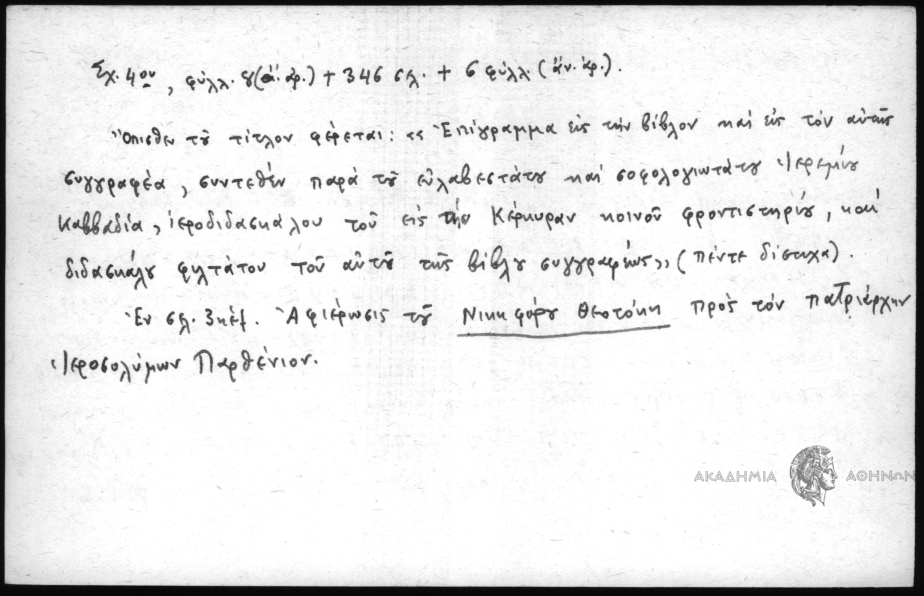 Σχ. 4ον, φύλλ. 8 (ἀ. ἀρ.) + 346 σελ. + 6 φύλλ. (ἀν. ἀρ.).
Ὄπισθεν τοῦ τίτλου φέρεται: «Ἐπίγραμμα εἰς τὴν βίβλον καὶ εἰς τὸν αὐτῆς
συγγραφέα, συντεθὲν παρὰ τοῦ εὐλαβεστάτου καὶ σοφολογιωτάτου Ἱερεμίου
Καββαδία, ἱεροδιδασκάλου τοῦ εἰς τὴν Κέρκυραν κοινοῦ φροντιστηρίου, καὶ
διδασκάλου φιλτάτου τοῦ αὐτοῦ τῆς βίβλου συγγραφέως» (πέντε δίστιχα).
Ἐν σελ. 3 κἑξ. Ἀφιέρωσις τοῦ Νικηφόρου Θεοτόκη πρὸς τὸν πατριάρχην
Ἱεροσολύμων Παρθένιον.
ΑΚΑΔΗΜΙΑ ΑΘΗΝΩΝ